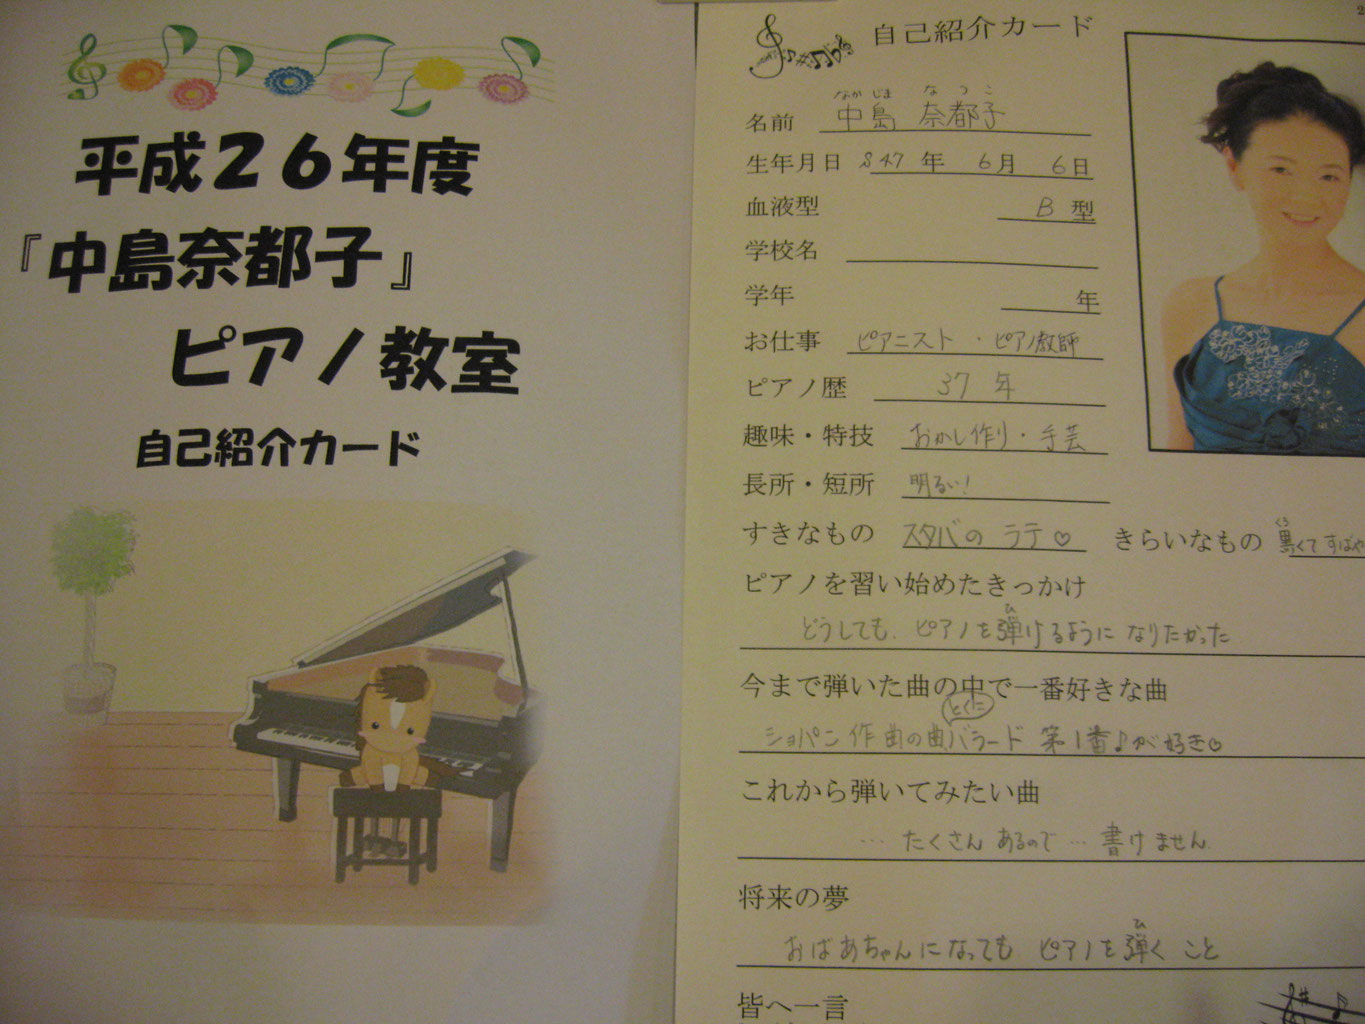 平成26年度
『中島奈都子』
ピアノ教室
自己紹介カード
自己紹介カード
なかじま なつこ
名前 中島 奈都子
生年月日 S47年 6月 6日
血液型 B型
学校名
学年 年
お仕事 ピアニスト・ピアノ教師
ピアノ歴 37年
趣味・特技 おかし作り・手芸
長所・短所 明るい!
すきなもの スタバのラテ♡ きらいなもの 黒くてすばや
くろ
ピアノを習い始めたきっかけ
どうしても、ピアノを弾けるようになりたかった
ひ
今まで弾いた曲の中で一番好きな曲
とくに
ショパン作曲の曲バラード第1番♪が好き♡
これから弾いてみたい曲
…たくさんあるので…書けません
将来の夢
ひ
おばあちゃんになってもピアノを弾くこと
皆へ一言